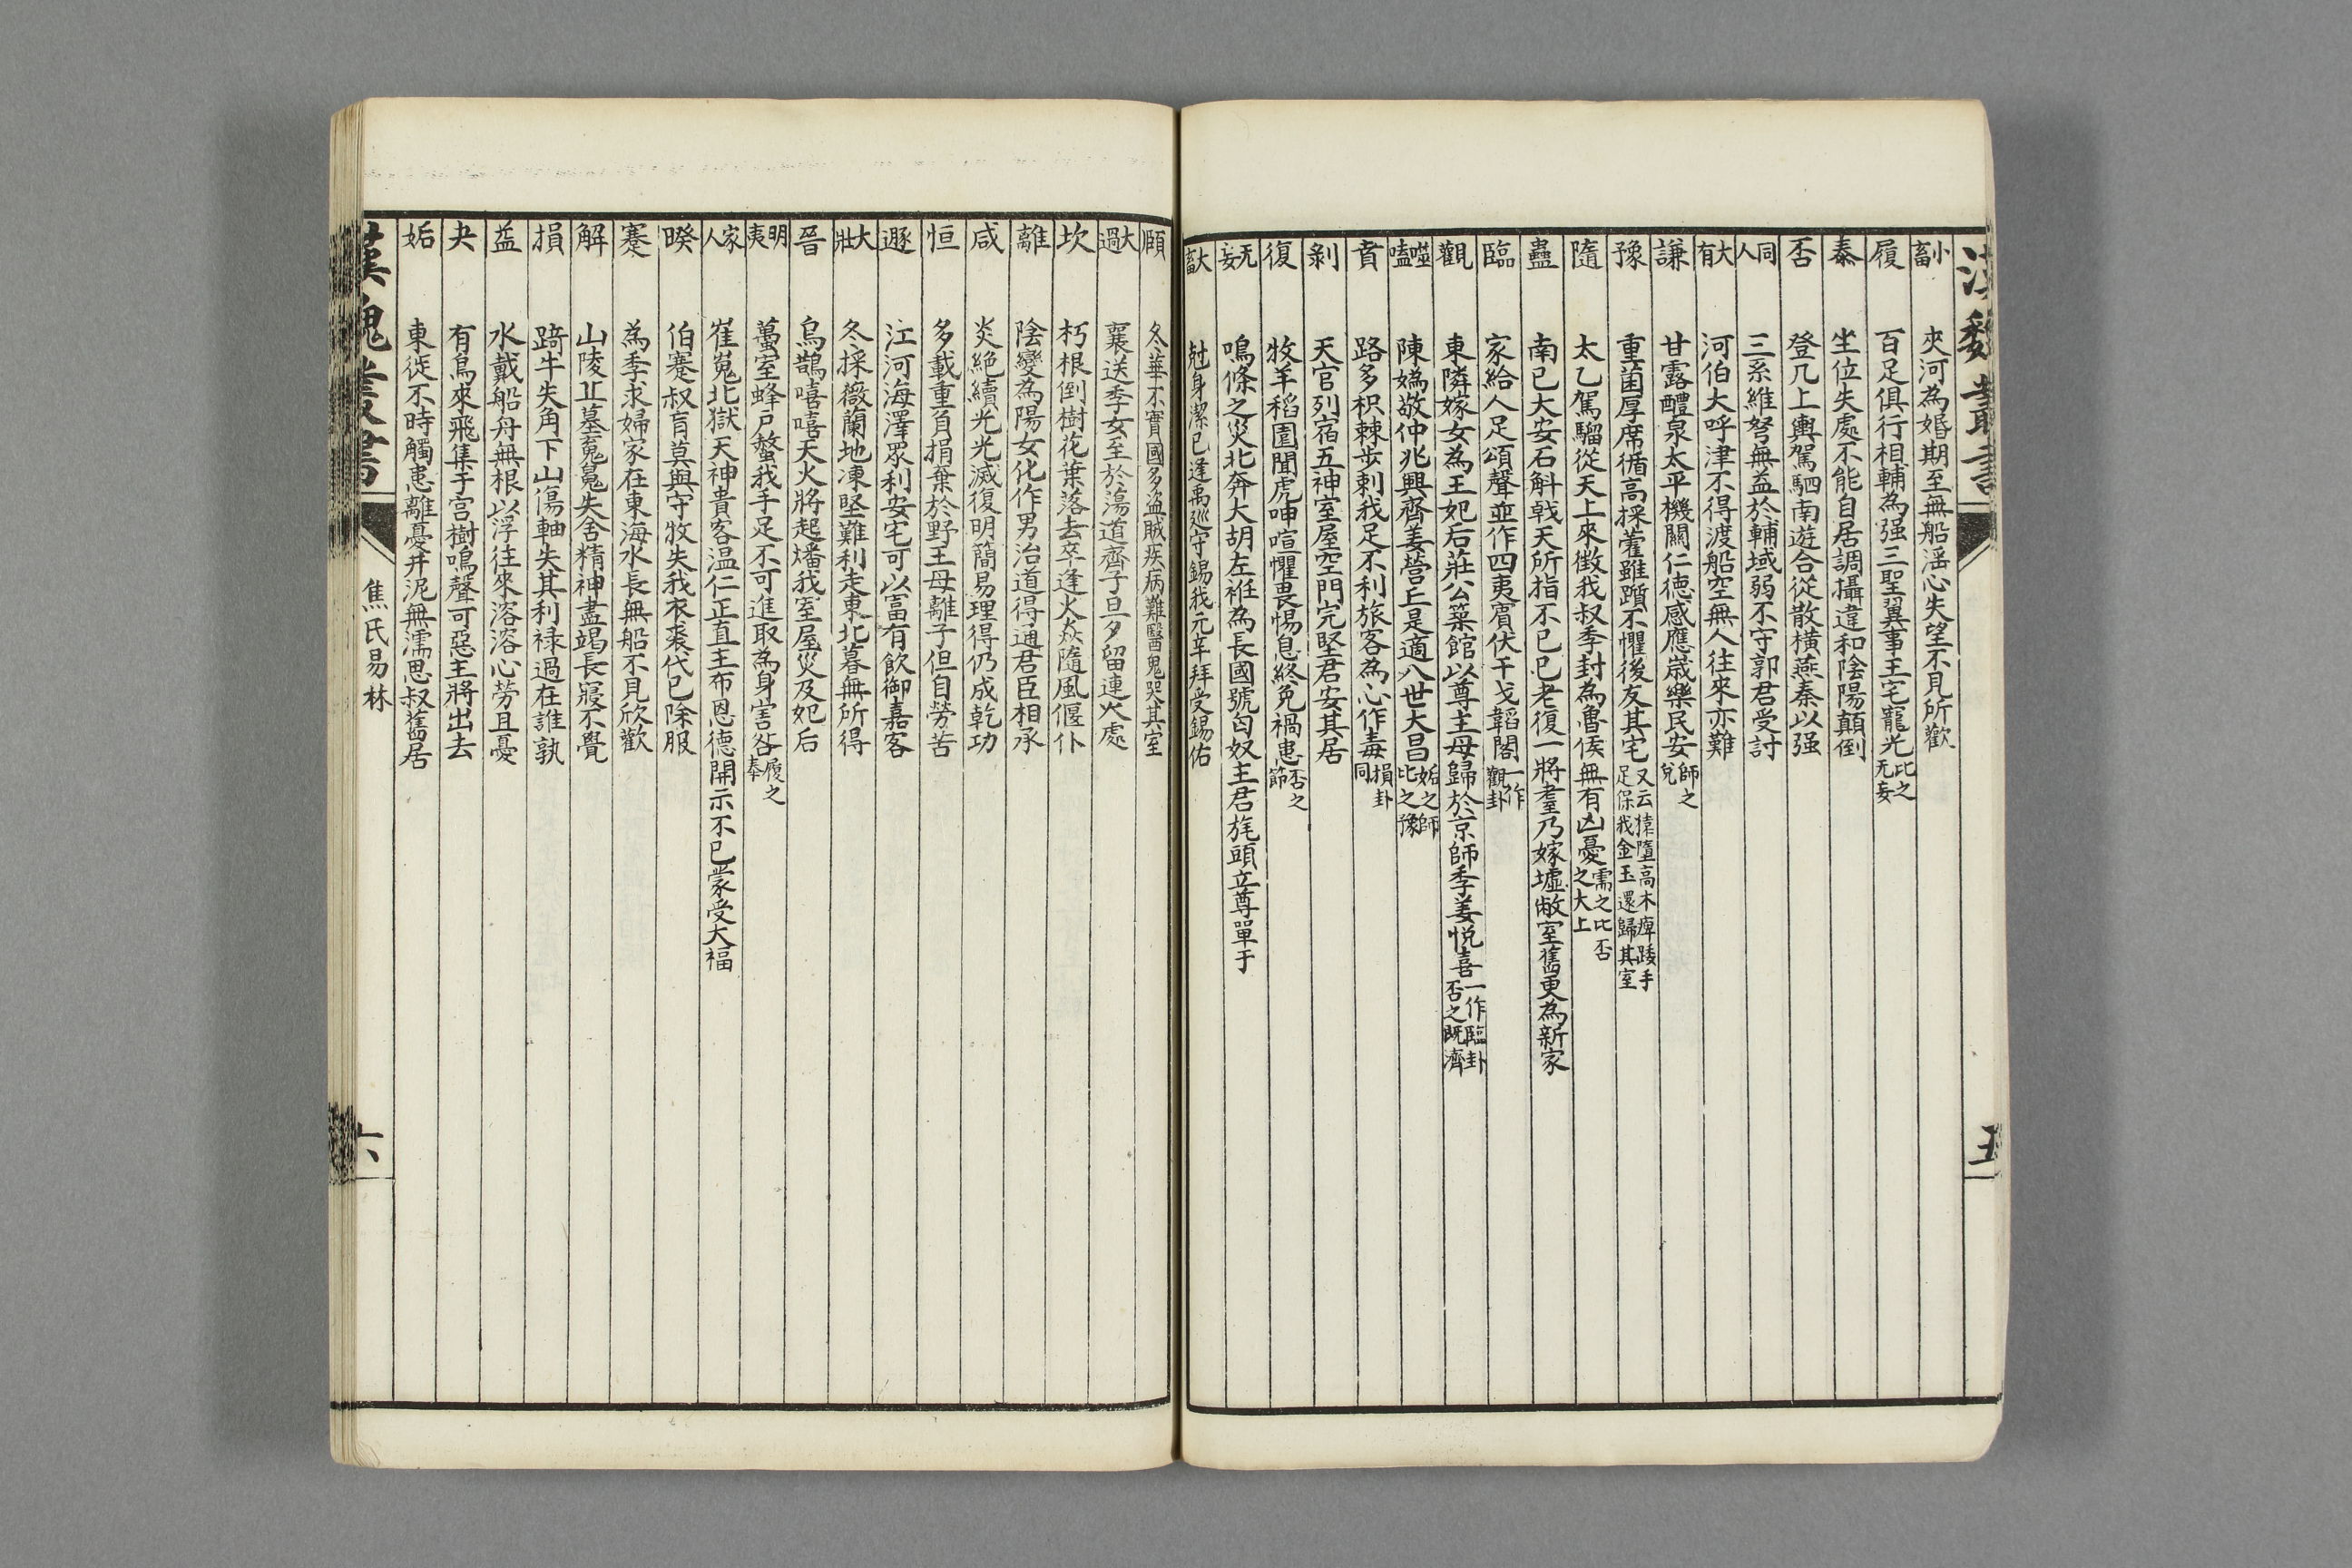 漢魏叢書
五
小畜 夾河為婚期至無船淫心失望不見所歡
履 百足俱行相輔為强三聖翼事王宅寵光比之无妄
泰 坐位失處不能自居調攝違和陰陽顛倒
否 登几上輿駕駟南遊合從散横燕秦以强
同人 三系維弩無益於輔域弱不守郭君受討
大有 河伯大呼津不得渡船空無人往來亦難
謙 甘露醴泉太平機關仁德感應歲樂民安師之兌
豫 重茵厚席循高採藿雖躓不懼後反其宅又云猿墮高木痺踒手足保我金玉還歸其室
隨 太乙駕騮從天上來徴我叔季封為魯侯無有凶憂需之比否之大上
蠱 南巳大安石斛戟天所指不已已老復一將羣乃嫁墟敝室舊更為新家
臨 家給人足頌聲並作四夷賓伏干戈韜閣一作觀卦
觀 東隣嫁女為王妃后莊公築館以尊主母歸於京師季姜悦喜一作臨卦否之既濟
噬嗑 陳嬀敬仲兆興齊姜營丘是適八世大昌姤之師比之豫
賁 路多枳棘步刺我足不利旅客為心作毒損卦同
剝 天官列宿五神室屋空門完堅君安其居
復 牧羊稻園聞虎呻喧懼畏惕息終免禍患否之節
无妄 鳴條之災北奔大胡左袵為長國號匈奴主君旄頭立尊單于
大畜 尅身潔已逢禹巡守錫我元圭拜受錫佑
頤 冬華不實國多盗賊疾病難醫鬼哭其室
大過 襄送季女至於蕩道齊子旦夕留連久處
坎 朽根倒樹花葉落去卒逢火焱隨風偃仆
離 陰變為陽女化作男治道得通君臣相承
咸 炎絶續光光滅復明簡易理得仍成乾功
恒 多載重負捐棄於野王母離子但自勞苦
遯 江河海澤眾利安宅可以富有飲御嘉客
大壯 冬採薇蘭地凍堅難利走東北暮無所得
晉 烏鵲嘻嘻天火將起燔我室屋災及妃后
明夷 蠆室蜂戸螫我手足不可進取為身害咎履之泰
家人 崔嵬北嶽天神貴客温仁正直主布恩德開示不已蒙受大福
睽 伯蹇叔盲莫與守牧失我衣裘代已除服
蹇 為季求婦家在東海水長無船不見欣歡
解 山陵丘墓寃䰟失舍精神盡竭長寢不覺
損 踦牛失角下山傷軸失其利禄過在誰孰
益 水戴船舟無根以浮往來溶溶心勞且憂
夬 有鳥來飛集于宫樹鳴聲可惡主將出去
姤 東徙不時觸患離憂井泥無濡思叔舊居
漢魏叢書
焦氏易林
六